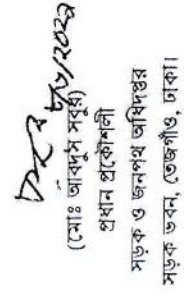 (মোঃ আবদুস সবুর)
প্রধান প্রকৌশলী
সড়ক ও জনপথ অধিদপ্তর
সড়ক ভবন, তেজগাঁও, ঢাকা।